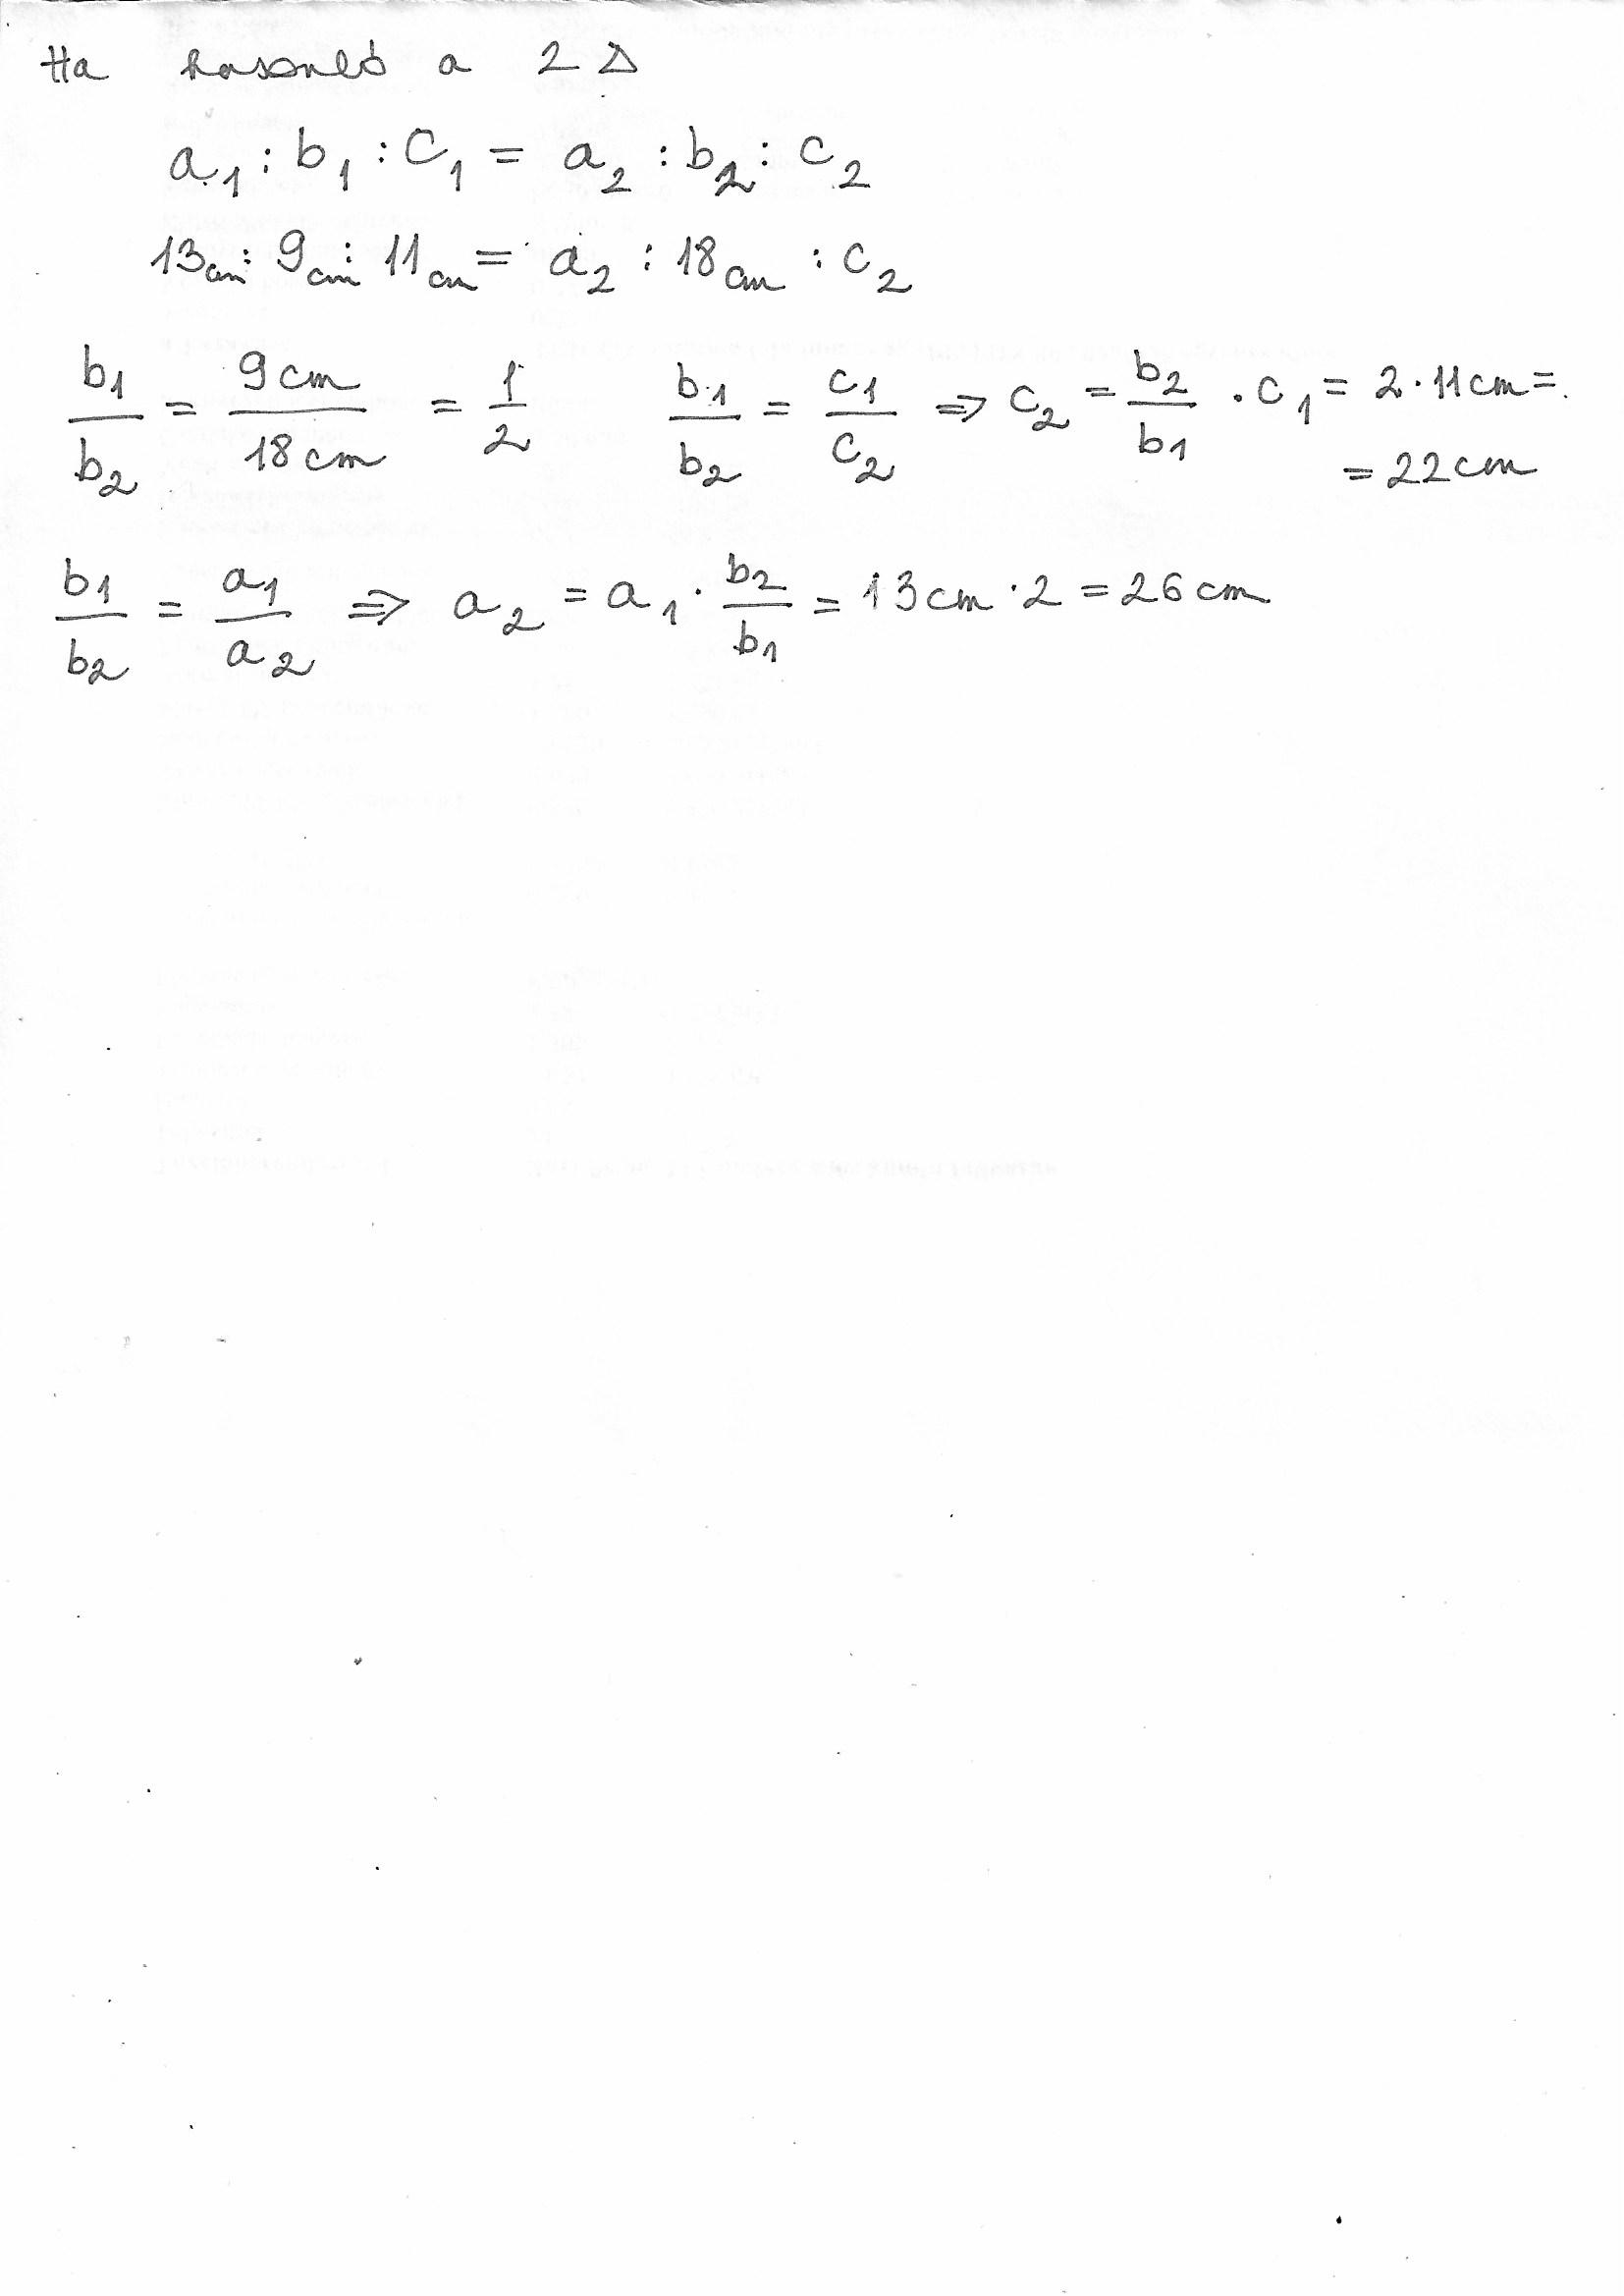 Ha hasonló a 2 Δ
a₁ : b₁ : c₁ = a₂ : b₂ : c₂
13cm : 9cm : 11cm = a₂ : 18cm : c₂
b₁/b₂ = 9cm/18cm = 1/2 b₁/b₂ = c₁/c₂ ⇒ c₂ = b₂/b₁ · c₁ = 2 · 11cm =
= 22cm
b₁/b₂ = a₁/a₂ ⇒ a₂ = a₁ · b₂/b₁ = 13cm · 2 = 26cm